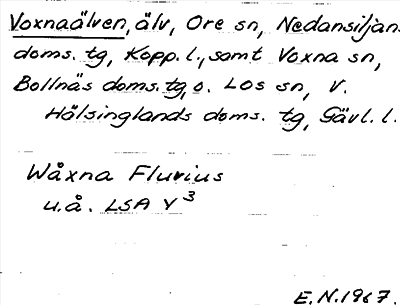 Voxnaälven, älv, Ore sn, Nedansiljans
doms. tg, Kopp. l., samt Voxna sn,
Bollnäs doms. tg, o. Los sn, V.
Hälsinglands doms. tg, Gävl. l.
Wåxna Fluvius
u.å. LSA Y3
E.N. 1967.